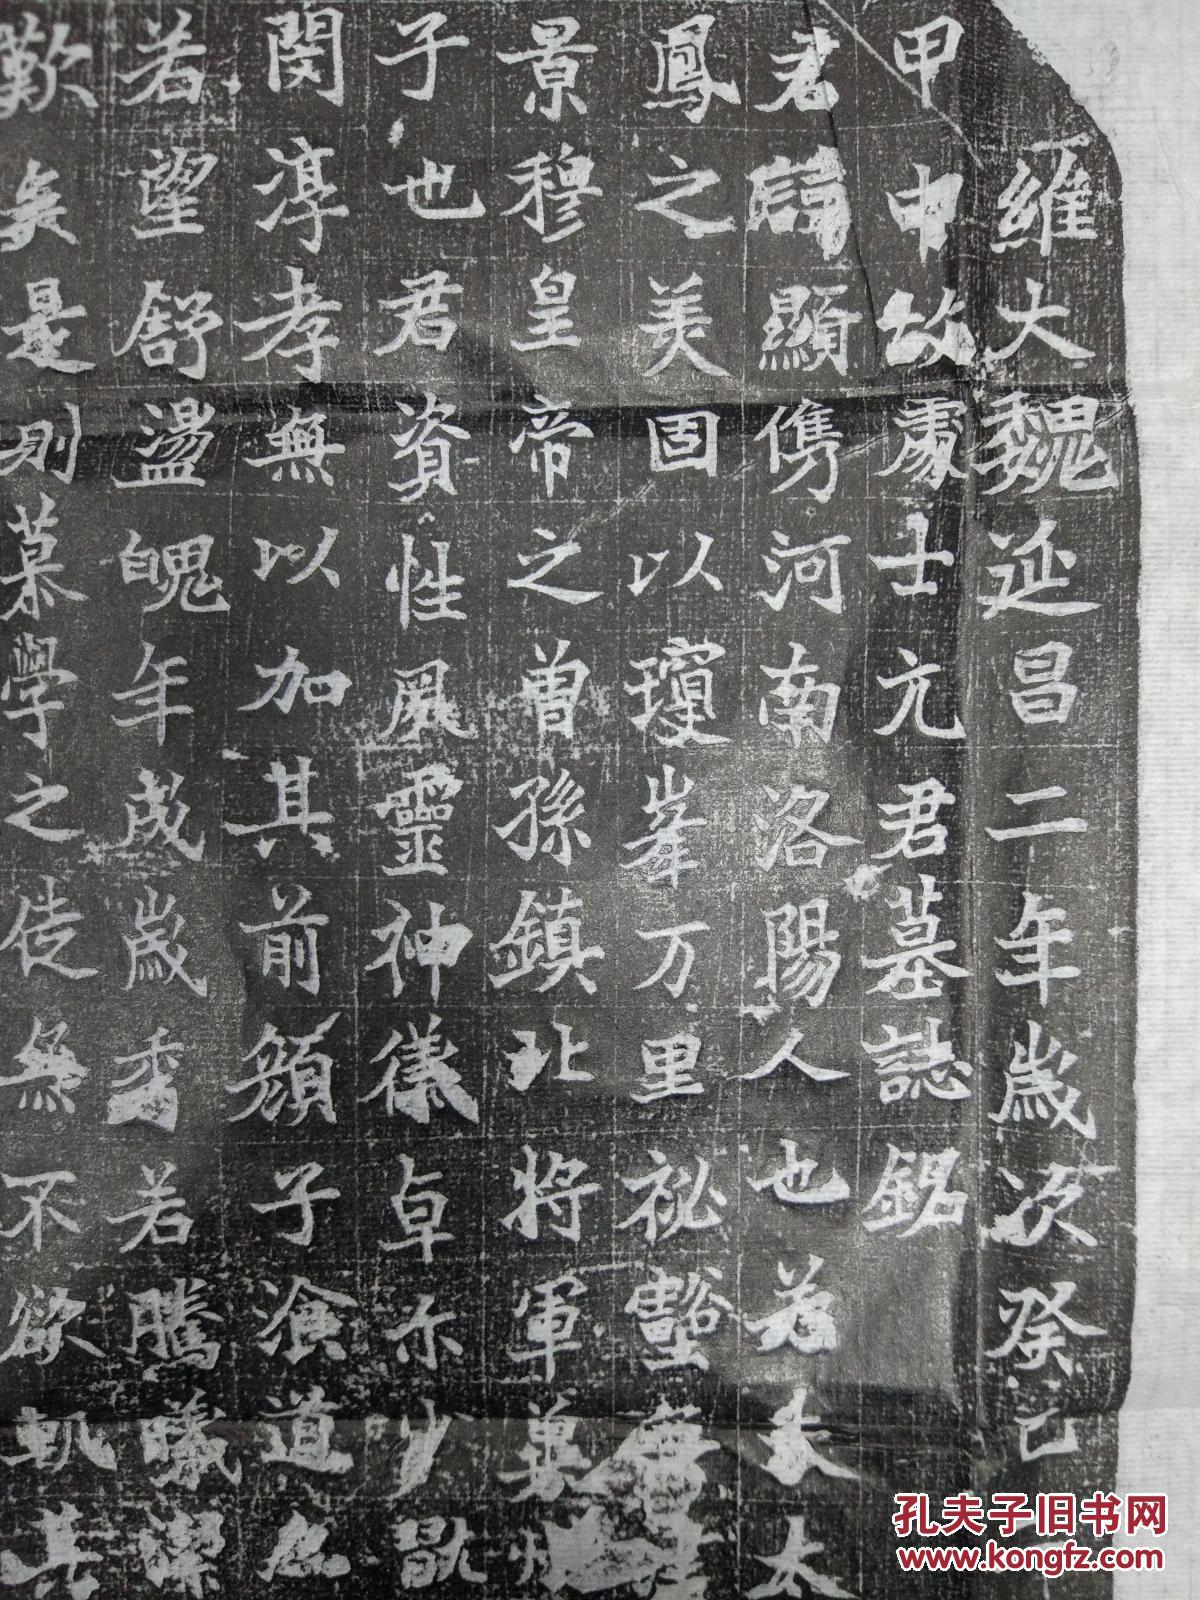 維大魏延昌二年歲次癸巳二
甲申故處士元君墓誌銘
君諱顯儁河南洛陽人也若夫太
鳳之美固以瓊峯万里祕壑
景穆皇帝之曾孫鎮北將軍冀州
子也君資性夙靈神儀卓尓少
閔淳孝無以加其前顏子湌道
若望舒盪魄年成歲秀若騰曦潔
歎矣是則慕學之徒無不欲軌其
孔夫子旧书网
www.kongfz.com